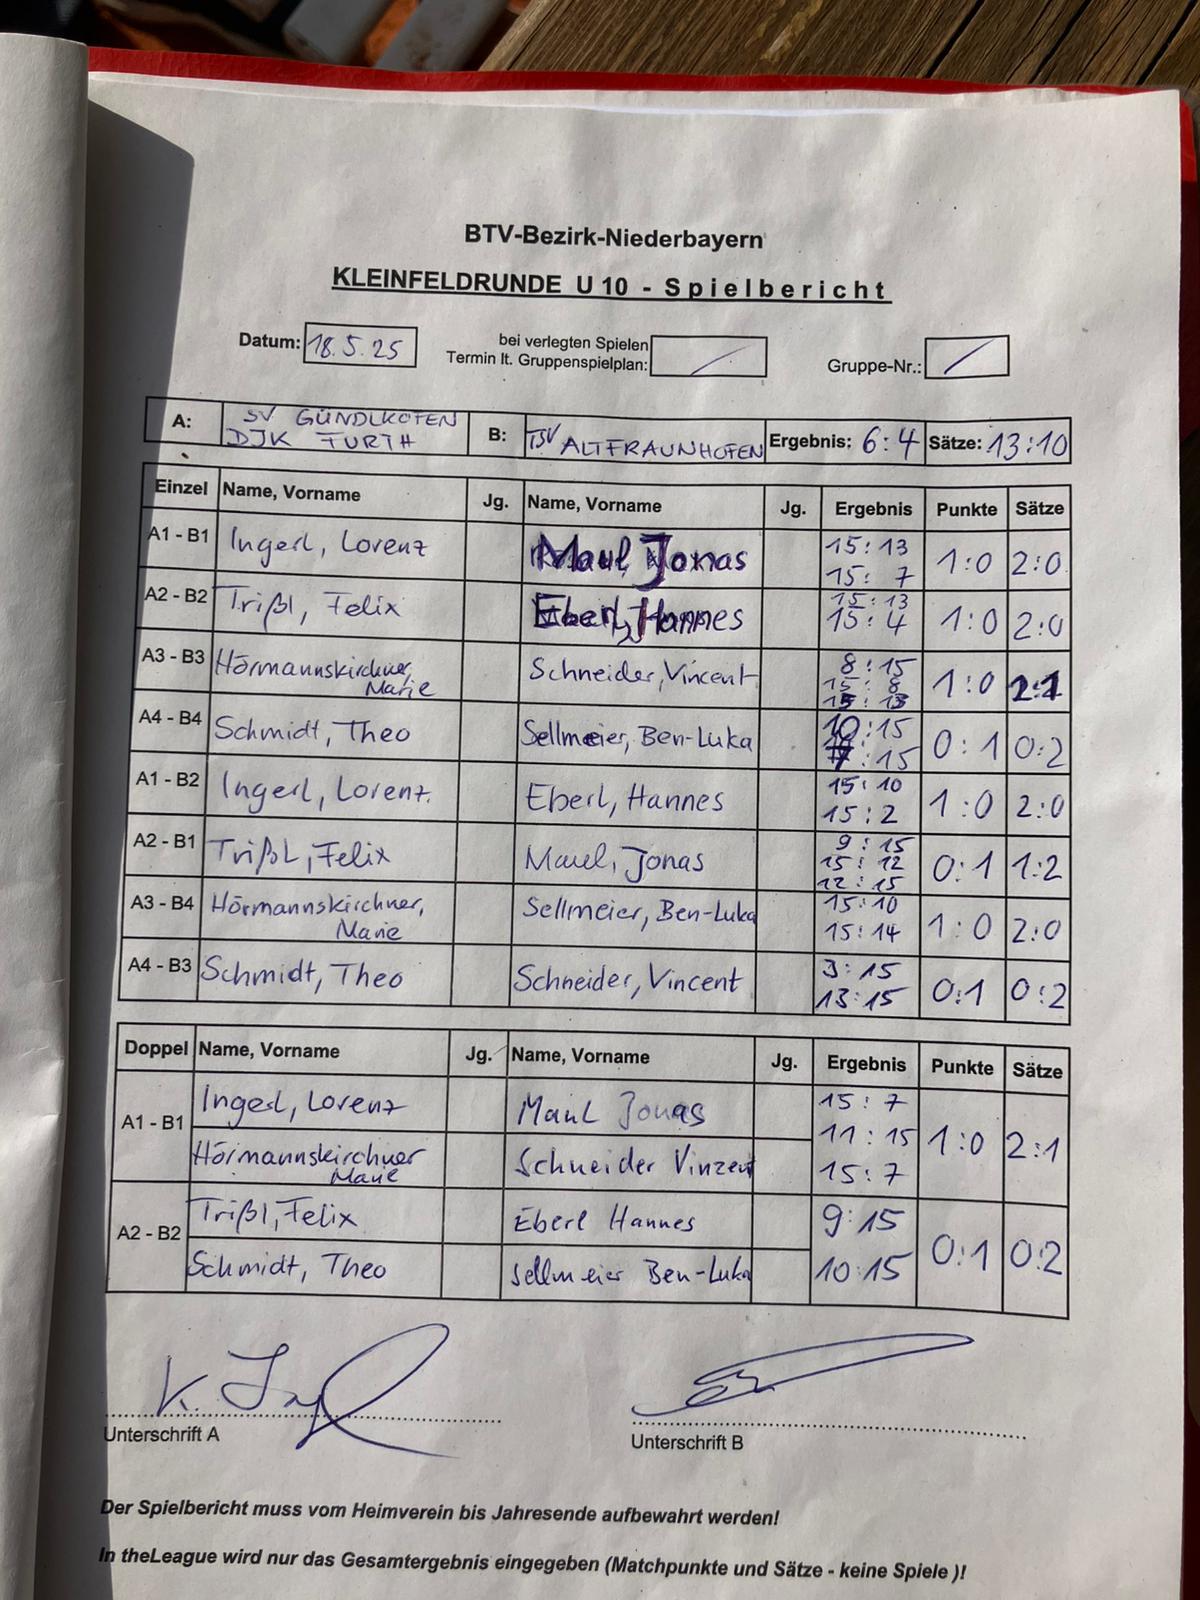 BTV-Bezirk-Niederbayern
KLEINFELDRUNDE U 10 - Spielbericht
Datum: 18.5.25 bei verlegten Spielen Termin lt. Gruppenspielplan: / Gruppe-Nr.: /
A: SV GÜNDLKOFEN DJK FURTH B: TSV ALTFRAUNHOFEN Ergebnis: 6:4 Sätze: 13:10
Einzel Name, Vorname Jg. Name, Vorname Jg. Ergebnis Punkte Sätze
A1 - B1 Ingerl, Lorenz Maul Jonas 15:13 15:7 1:0 2:0
A2 - B2 Trißl, Felix Eberl, Hannes 15:13 15:4 1:0 2:0
A3 - B3 Hörmannskirchner, Marie Schneider, Vincent 8:15 15:8 15:13 1:0 2:1
A4 - B4 Schmidt, Theo Sellmeier, Ben-Luka 10:15 7:15 0:1 0:2
A1 - B2 Ingerl, Lorenz Eberl, Hannes 15:10 15:2 1:0 2:0
A2 - B1 Trißl, Felix Maul, Jonas 9:15 15:12 12:15 0:1 1:2
A3 - B4 Hörmannskirchner, Marie Sellmeier, Ben-Luka 15:10 15:14 1:0 2:0
A4 - B3 Schmidt, Theo Schneider, Vincent 3:15 13:15 0:1 0:2
Doppel Name, Vorname Jg. Name, Vorname Jg. Ergebnis Punkte Sätze
A1 - B1 Ingerl, Lorenz Maul Jonas 15:7 11:15 15:7 1:0 2:1
Hörmannskirchner Marie Schneider Vinzent
A2 - B2 Trißl, Felix Eberl Hannes 9:15 10:15 0:1 0:2
Schmidt, Theo Sellmeier Ben-Luka
Unterschrift A
Unterschrift B
Der Spielbericht muss vom Heimverein bis Jahresende aufbewahrt werden!
In theLeague wird nur das Gesamtergebnis eingegeben (Matchpunkte und Sätze - keine Spiele )!